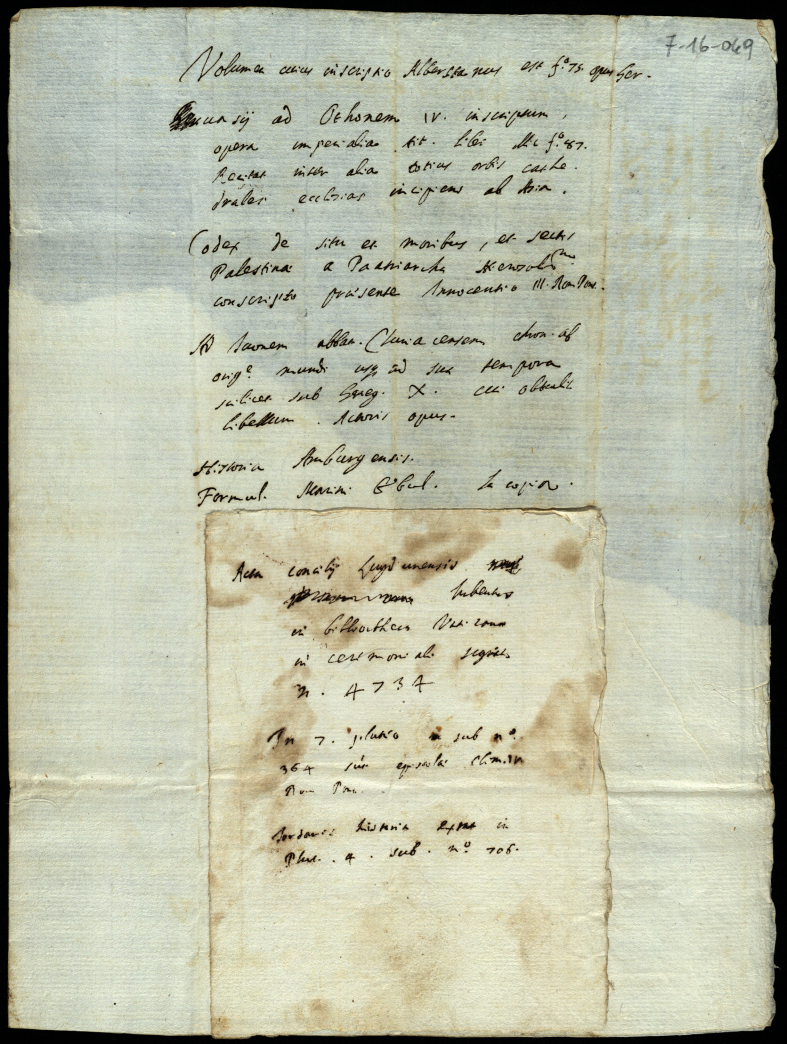 7-16-049
Volumen cuius inscriptio Albertanus est f.o 75. opus Ger-
uasij ad Othonem IV. inscriptum,
opera imperialia tit. libri f.o 87.
Recitat inter alia totius orbis cathe-
drales ecclesias incipiens ab Asia.
Codex de situ et moribus, et sectis
Palestinae a Patriarcha
conscripto praesente Innocentio III. Rom. Pont.
Ad Iuonem abbat. Cluniacensem chron. ab
orig.e mundi usq ad sua tempora
scilicet sub Greg. X. cui obtulit
libellum. Actoris opus.
Historia Amburgensis.
Formul. Marini Ebul. in copia.
Acta concilij Lugdunensis
habentur
in bibliotheca Vaticana
in ceremoniali
n. 4734
In 7. pluteo sub n.o
364 sūt epistolae Clem. IV
Rom Pon.
Iordanis historia extat in
Plut. 4. sub. n.o 706.